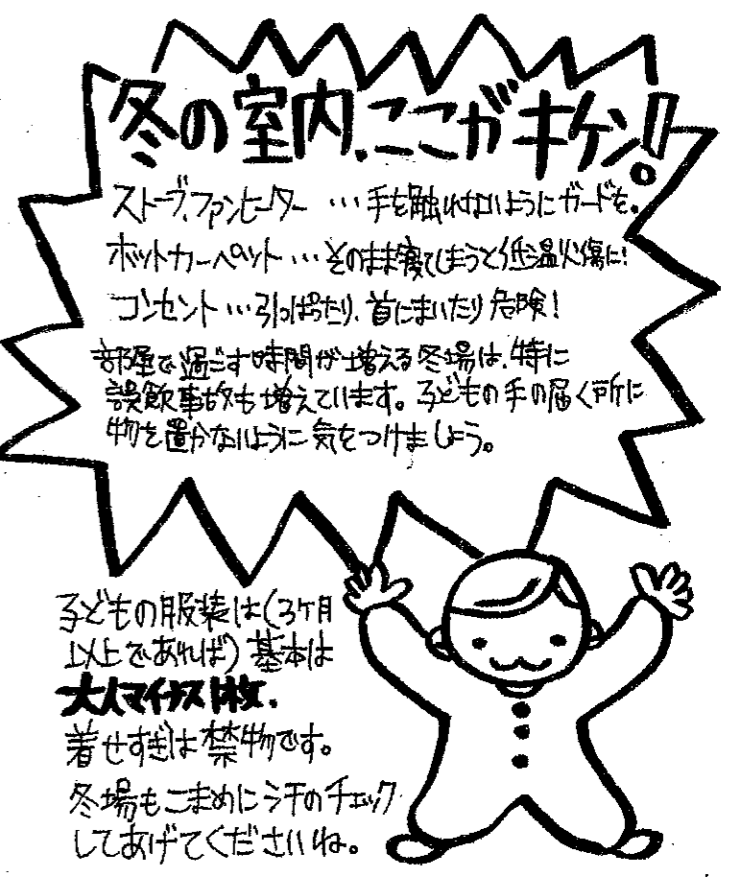 冬の室内、ここがキケン!
ストーブ、ファンヒーター…手を触れないようにガードを。
ホットカーペット…そのまま寝てしまうと低温火傷に!
コンセント…引っぱったり、首にまいたり危険!
部屋で過ごす時間が増える冬場は、特に
誤飲事故も増えています。子どもの手の届く所に
物を置かないように気をつけましょう。
子どもの服装は(3ヶ月
以上であれば)基本は
大人マイナス1枚。
着せすぎは禁物です。
冬場もこまめに汗のチェック
してあげてくださいね。